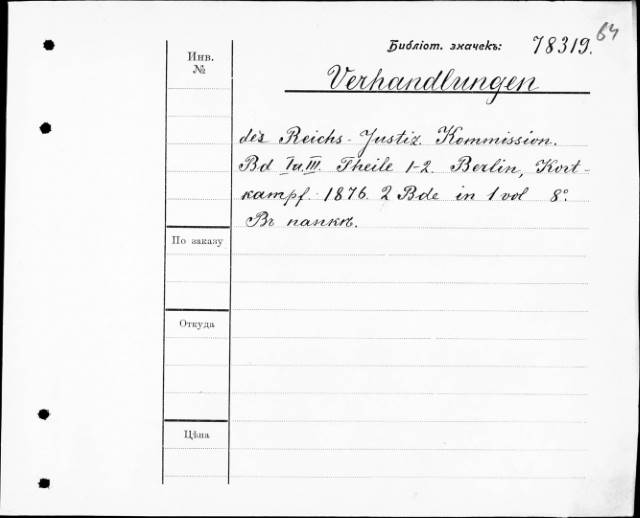 64
Библіот. значекъ: 78319.
Инв.
№
Verhandlungen
des Reichs-Justiz. Kommission.
Bd I u. III. Theile 1-2. Berlin, Kort-
kampf. 1876. 2 Bde in 1 vol 8°.
Въ папкѣ.
По заказу
Откуда
Цѣна